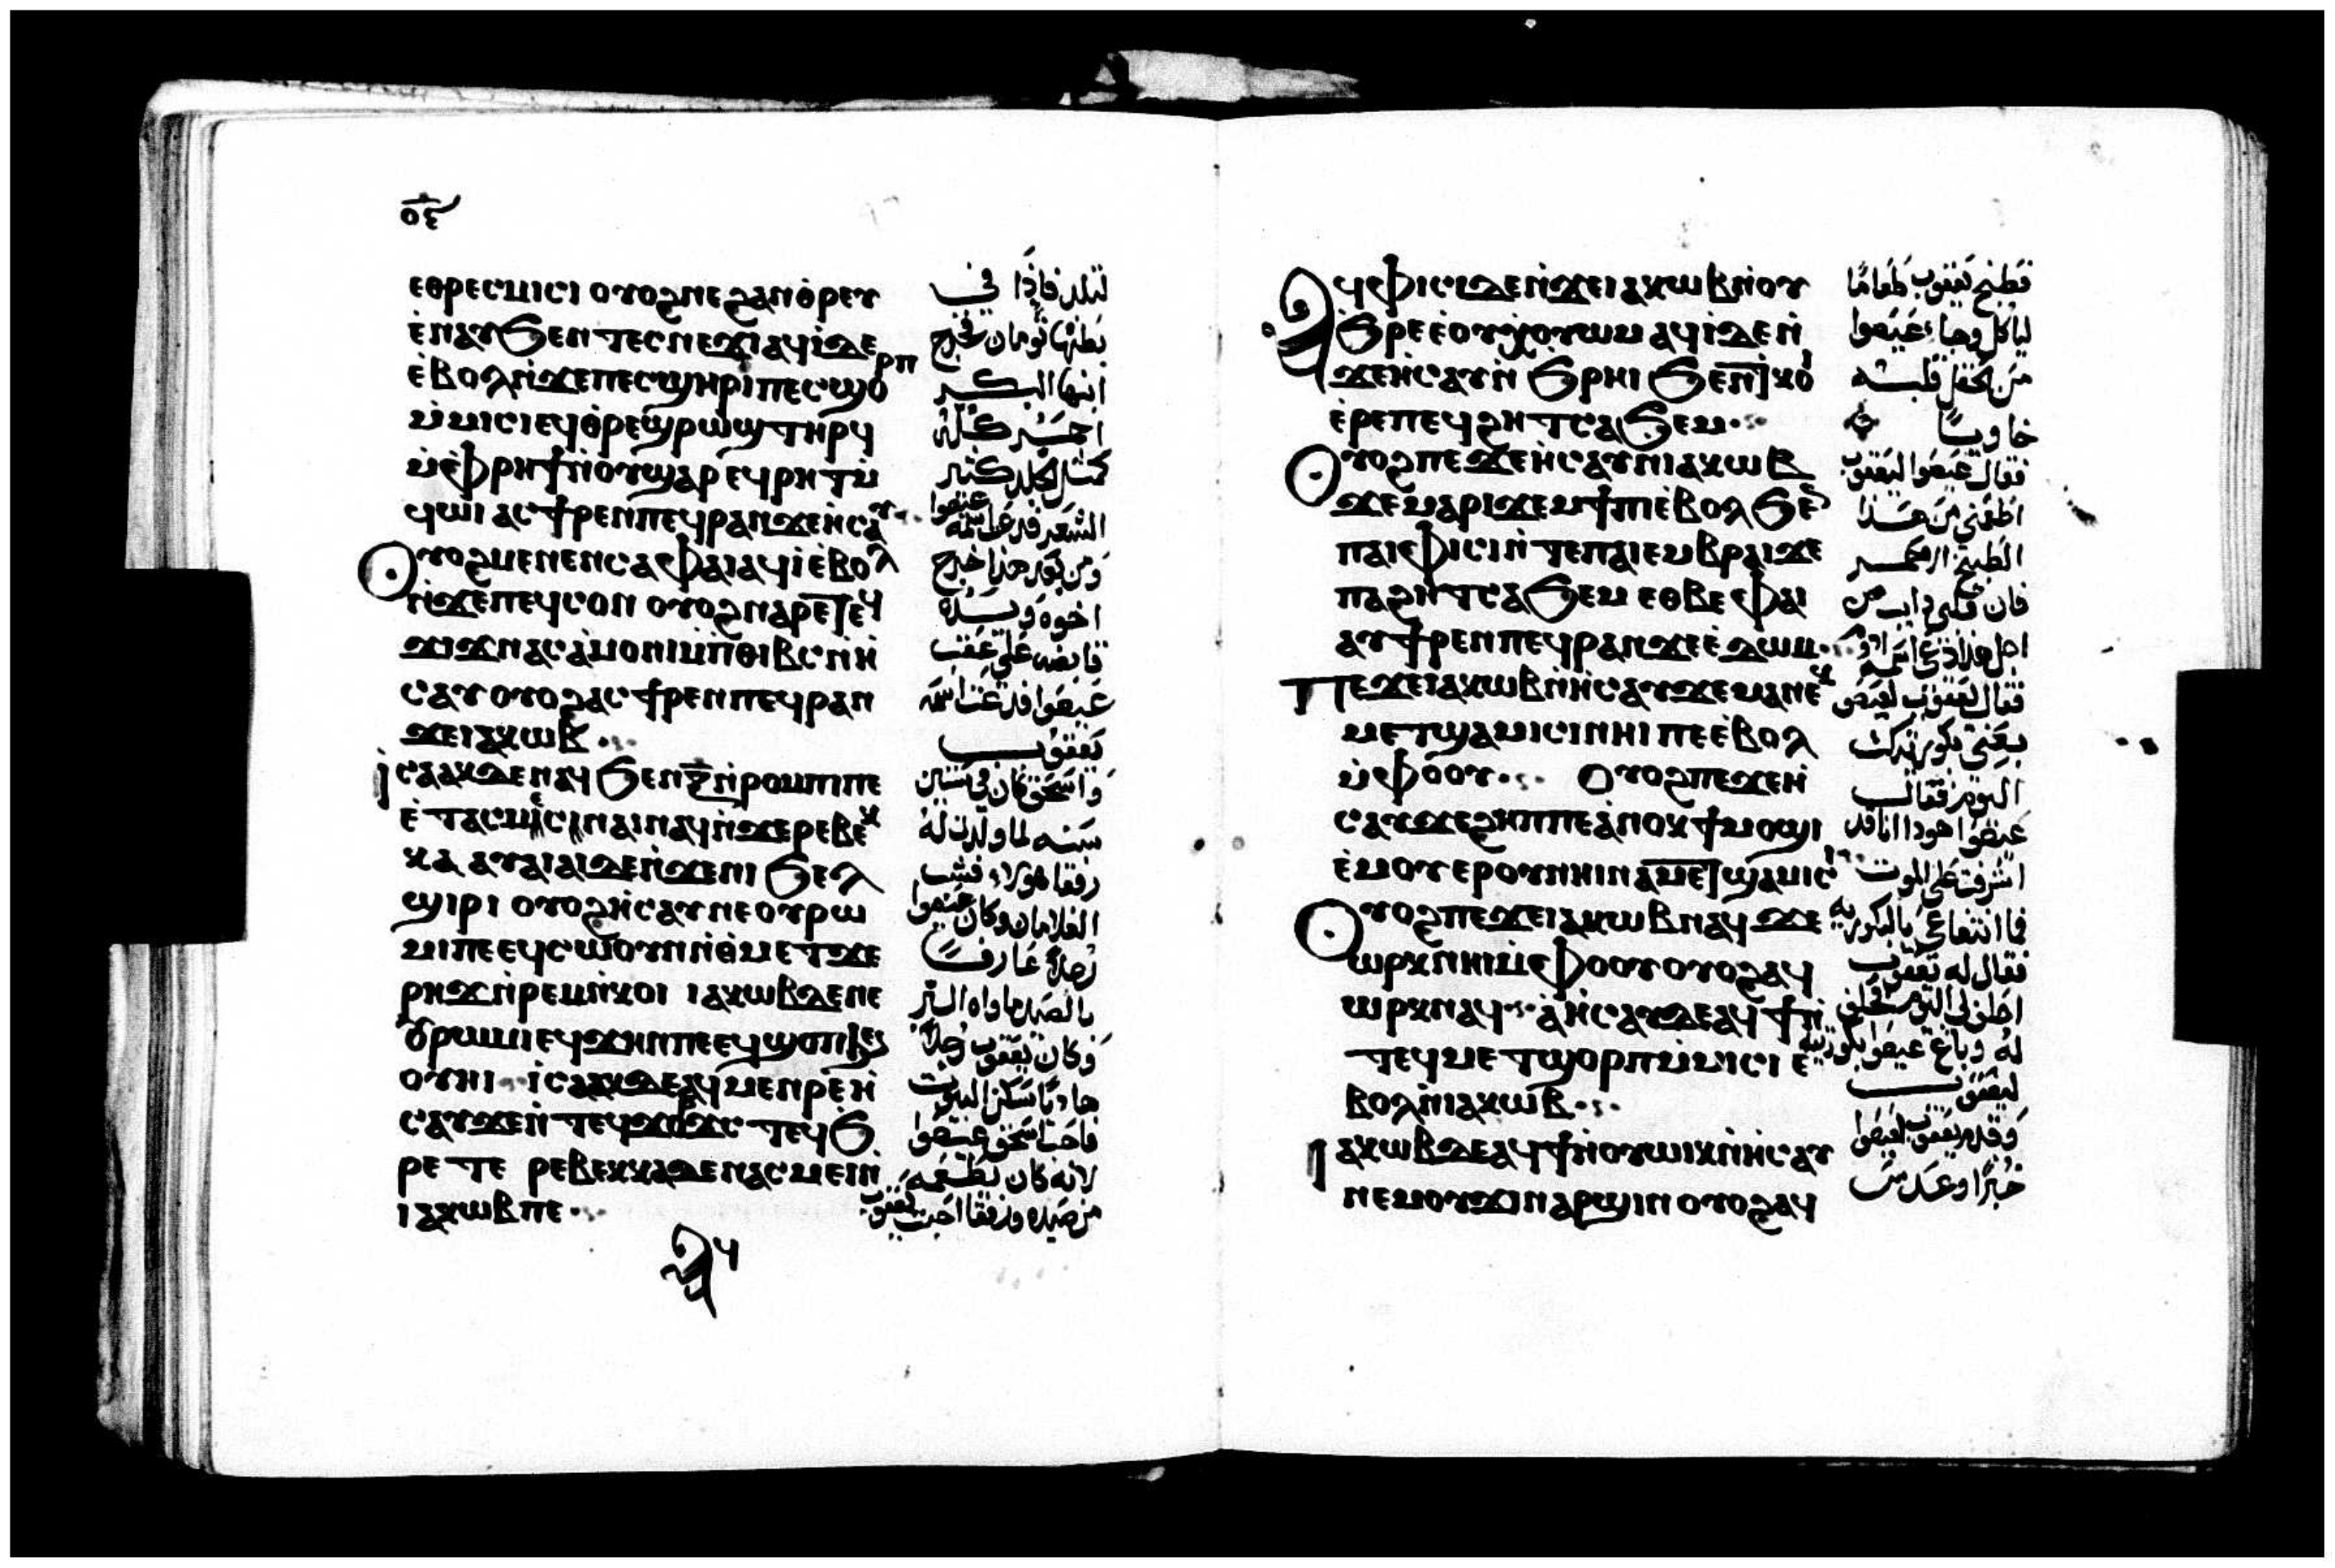 ⲟⲉ
ⲉⲑⲣⲉⲥⲙⲓⲥⲓ ⲟⲩⲟϩ ⲛⲉ ϩⲁⲛⲑ̀ⲣⲉⲩ
ⲉ̀ⲛⲁⲩ ϧⲉⲛ ⲧⲉⲥⲛⲉϫⲓ ⲁϥⲓ̀ ⲇⲉ
ⲉ̀ⲃⲟⲗ ⲛ̀ϫⲉ ⲡⲉⲥϣⲏⲣⲓ ⲡⲉⲥϣⲟⲣⲡ
ⲙ̀ⲙⲓⲥⲓ ⲉϥⲑ̀ⲣⲉϣⲣⲱϣ ⲧⲏⲣϥ
ⲙ̀ⲫⲣⲏϯ ⲛ̀ⲟⲩϣⲁⲣ ⲉϥⲣⲏⲧ ⲙ̀
ϥⲱⲓ ⲁⲥϯⲣⲉⲛ ⲡⲉϥⲣⲁⲛ ϫⲉ ⲏⲥⲁⲩ
ⲟⲩⲟϩ ⲙⲉⲛⲉⲛⲥⲁ ⲫⲁⲓ ⲁϥⲓ̀ ⲉ̀ⲃⲟⲗ
ⲛ̀ϫⲉ ⲡⲉϥⲥⲟⲛ ⲟⲩⲟϩ ⲛⲁⲣⲉ ⲧⲉϥ
ϫⲓϫ ⲛⲁⲥⲁ̀ⲙⲟⲛⲓ ⲙ̀ⲡⲑⲓⲃⲥ ⲛ̀ⲏ
ⲥⲁⲩ ⲟⲩⲟϩ ⲁⲥϯⲣⲉⲛ ⲡⲉϥⲣⲁⲛ
ϫⲉ ⲓⲁⲕⲱⲃ
ⲓⲥⲁⲁⲕ ⲇⲉ ⲛⲁϥ ϧⲉⲛ ⲝ̅ ⲛ̀ⲣⲟⲙⲡⲓ ⲡⲉ
ⲉ̀ⲧⲁⲥⲙⲉⲥ ⲛⲁⲓ ⲛⲁϥ ⲛ̀ϫⲉ ⲣⲉⲃⲉⲕ
ⲕⲁ ⲁⲩⲁⲓⲁⲓ ⲇⲉ ⲛ̀ϫⲉ ⲛⲓ ϧⲉⲗ
ϣⲓⲣⲓ ⲟⲩⲟϩ ⲏⲥⲁⲩ ⲛⲉ ⲟⲩⲣⲱ
ⲙⲓ ⲡⲉ ⲉϥⲥⲱⲟⲩⲛ ⲛ̀ⲑⲙⲉⲧϫⲉ
ⲣⲏϫ ⲛ̀ⲣⲉⲙⲛ̀ⲕⲟⲓ ⲓⲁⲕⲱⲃ ⲇⲉ ⲛⲉ
ⲟⲩⲣⲱⲙⲓ ⲉϥϫⲏⲡ ⲡⲉ ⲉϥϣⲟⲡ ϧⲉⲛ
ⲟⲩⲏⲓ ⲓⲥⲁⲁⲕ ⲇⲉ ⲁϥⲙⲉⲛⲣⲉ ⲏ
ⲥⲁⲩ ϫⲉ ⲛ̀ⲧⲉϥϫⲟⲣϫⲥ ⲧⲉϥϧ
ⲣⲉ ⲧⲉ ⲣⲉⲃⲉⲕⲕⲁ ⲇⲉ ⲛⲁⲥⲙⲉⲓ ⲛ̀
ⲓⲁⲕⲱⲃ ⲡⲉ
ⲁϥ
لتلد فاذا في
بطنها تومان فخرج
ابنها البكر
احمر كله
كمثل جلد كثير
الشعر فدعت اسمه عيصوا
ومن بعد هذا خرج
اخوه ويده
قابضه على عقب
عيصوا فدعت اسمه
يعقوب
واسحق كان في ستين
سنه لما ولدت له
رفقا هولاء فشب
الغلامان وكان عيصوا
رجلا عارفا
بالصيد
وكان يعقوب رجلا
هاديا ساكن البيوت
فاحب اسحق عيصوا
لانه كان يطعمه
من صيده ورفقا احبت يعقوب
ⲁϥⲫⲓⲥⲓ ⲇⲉ ⲛ̀ϫⲉ ⲓⲁⲕⲱⲃ ⲛ̀ⲟⲩ
ϧⲣⲉ ⲉ̀ⲟⲩⲟⲙⲥ ⲁϥⲓ̀ ⲇⲉ ⲛ̀
ϫⲉ ⲏⲥⲁⲩ ⲛ̀ϧⲣⲏⲓ ϧⲉⲛ ⲧⲕⲟⲓ
ⲉ̀ⲣⲉ ⲡⲉϥϩⲏⲧ ⲥⲁϧⲉⲙ
ⲟⲩⲟϩ ⲡⲉϫⲉ ⲏⲥⲁⲩ ⲛ̀ⲓⲁⲕⲱⲃ
ϫⲉ ⲙⲁⲣⲓϫⲉⲙϯⲡⲓ ⲉ̀ⲃⲟⲗ ϧⲉⲛ
ⲡⲁⲓⲫⲓⲥⲓ ⲛ̀ⲧⲉ ⲡⲁⲓⲉⲙⲃⲣⲁⲓ ϫⲉ
ⲡⲁϩⲏⲧ ⲥⲁϧⲉⲙ ⲉⲑⲃⲉ ⲫⲁⲓ
ⲁⲩϯⲣⲉⲛ ⲡⲉϥⲣⲁⲛ ϫⲉ ⲉ̀ⲇⲱⲙ
ⲡⲉϫⲉ ⲓⲁⲕⲱⲃ ⲛ̀ⲏⲥⲁⲩ ϫⲉ ⲙⲁ ⲛⲉⲕ
ⲙⲉⲧϣⲁⲙⲓⲥⲓ ⲛⲏⲓ ⲡⲉ ⲉ̀ⲃⲟⲗ
ⲙ̀ⲫⲟⲟⲩ ⲟⲩⲟϩ ⲡⲉϫⲉ ⲏ
ⲥⲁⲩ ϫⲉ ϩⲏⲡⲡⲉ ⲁ̀ⲛⲟⲕ ϯⲙⲟϣⲓ
ⲉ̀ⲙⲟⲩ ⲉⲣⲟⲩ ⲛⲏⲓ ⲛⲁⲙⲉⲧϣⲁⲙⲓⲥⲓ
ⲟⲩⲟϩ ⲡⲉϫⲉ ⲓⲁⲕⲱⲃ ⲛⲁϥ ϫⲉ
ⲱⲣⲕ ⲛⲏⲓ ⲙ̀ⲫⲟⲟⲩ ⲟⲩⲟϩ ⲁϥ
ⲱⲣⲕ ⲛⲁϥ ⲁ̀ⲏⲥⲁⲩ ⲇⲉ ⲁϥϯ ⲛ̀
ⲧⲉϥⲙⲉⲧϣⲟⲣⲡ ⲙ̀ⲙⲓⲥⲓ ⲉ̀
ⲃⲟⲗ ⲛ̀ⲓⲁⲕⲱⲃ
ⲓⲁⲕⲱⲃ ⲇⲉ ⲁϥϯ ⲛ̀ⲟⲩⲱⲓⲕ ⲛ̀ⲏⲥⲁⲩ
ⲛⲉⲙ ⲟⲩϫⲓⲛ ⲁⲣϣⲓⲛ ⲟⲩⲟϩ ⲁϥ
فطبخ يعقوب طعاما
لياكل وجاء عيصوا
من الحقل قلبه
خاويا
فقال عيصوا ليعقوب
اطعمني من هذا
الطبيخ الاحمر
فان قلبي ذايب من
اجل هذا دعي اسمه ادوم
فقال يعقوب لعيصو
بيعني بكوريتك
اليوم فقال
عيصوا هوذا انا قد
اشرفت على الموت
فما انتفاعي بالبكوريه
فقال له يعقوب
احلف لي اليوم فحلف
له وباع عيصوا بكوريته
ليعقوب
وقدم يعقوب لعيصوا
خبزا وعدس